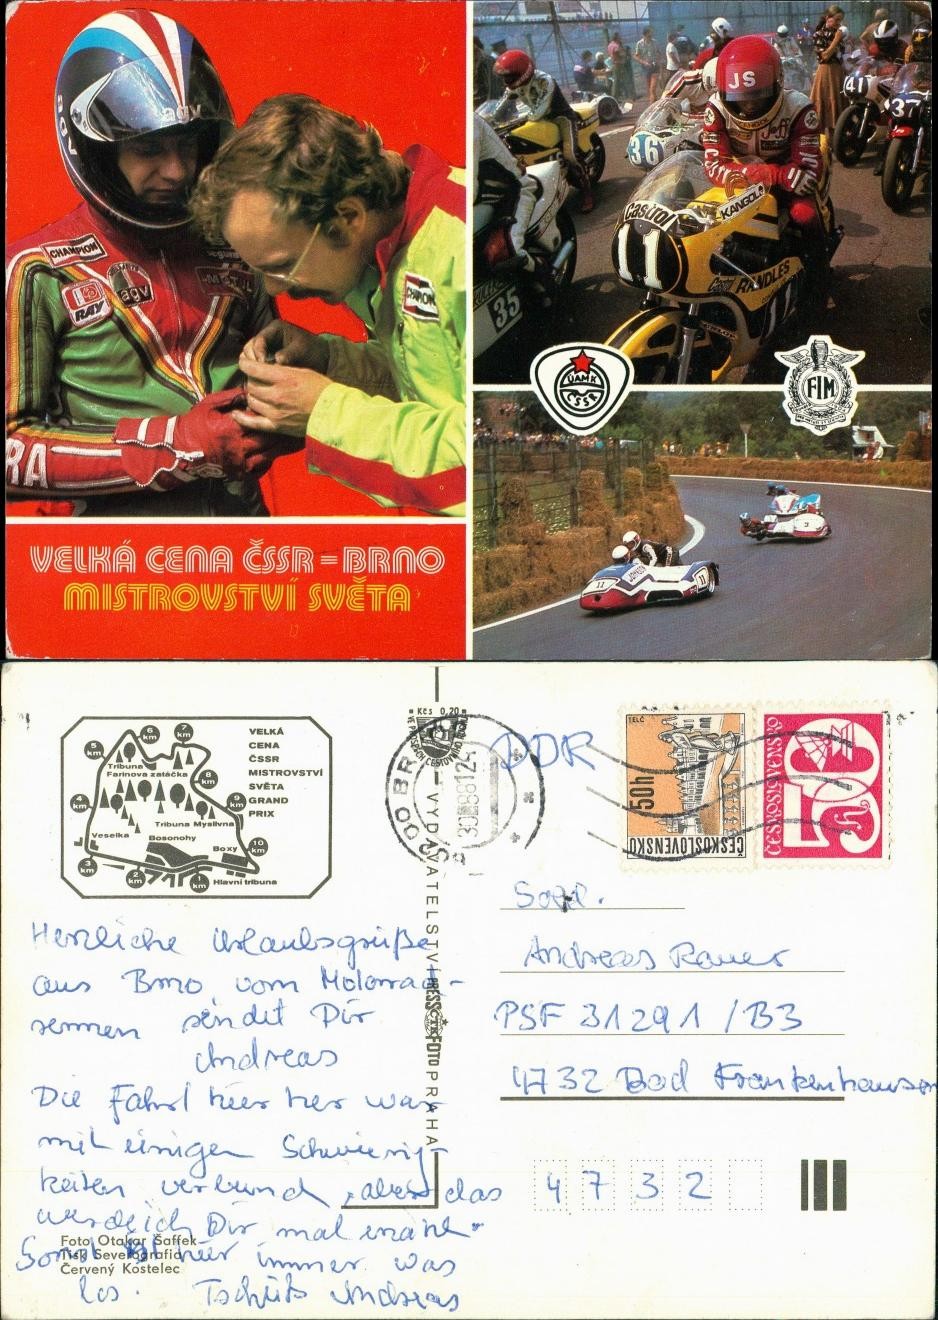 agv
agv
CHAMPION
RAY
agv
CHAMPION
RA
JS
36
41
37
Castrol
KANGOL
11
RANDLES
35
ÚAMK
ČSSR
FIM
11
11
3
VELKÁ CENA ČSSR = BRNO
MISTROVSTVÍ SVĚTA
VELKÁ
CENA
ČSSR
MISTROVSTVÍ
SVĚTA
GRAND
PRIX
6 km
7 km
5 km
Tribuna
Farinova zatáčka
8 km
4 km
9 km
Tribuna Myslivna
Veselka
Bosonohy
Boxy
10 km
3 km
2 km
1 km
Hlavní tribuna
Kčs 0,20
VYDAVATELSTVÍ PRESSFOTO PRAHA
BRNO
30.8.81
TELČ
50h
ČESKOSLOVENSKO
ČESKOSLOVENSKO
50
DDR
Sold.
Andreas Rauer
PSF 31291 / B3
4732 Bad Frankenhausen
4 7 3 2
Herzliche Urlaubsgrüße
aus Brno vom Motorrad-
rennen sendet Dir
Andreas
Die Fahrt hier her war
mit einigen Schwierig-
keiten verbund, aber das
werde ich Dir mal erzähl.
Sonst ist hier immer was
los. Tschüß Andreas
Foto Otakar Šaffek
Tisk Severografia
Červený Kostelec